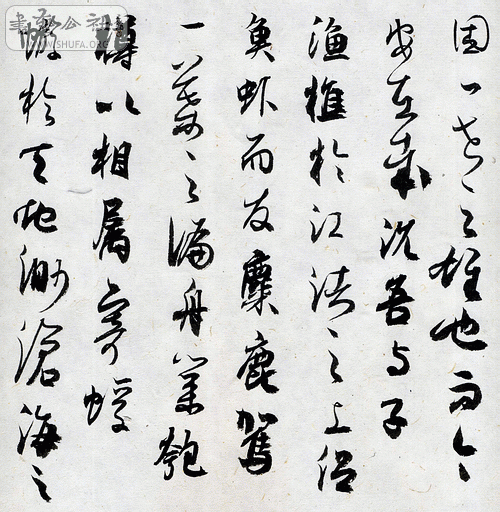 固一世之雄也而今
安在哉況吾与子
漁樵於江渚之上侶
魚虾而友麋鹿駕
一葉之扁舟舉匏
樽以相屬寄蜉
蝣於天地渺滄海之
書法公社
WWW.SHUFA.ORG